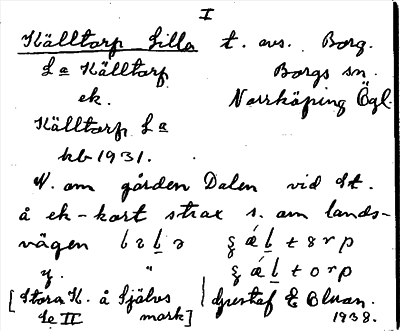 I
Källtorp Lilla t. avs. Borg.
La Källtorp Borgs sn.
ek. Norrköping Ögl.
Källtorp La
hb 1931.
N. om gården Dalen vid St.
å ek-kart strax s. om lands-
vägen
y. "
[Stora K. å Självs
se II mark]
Gustaf E Bluan.
1938.